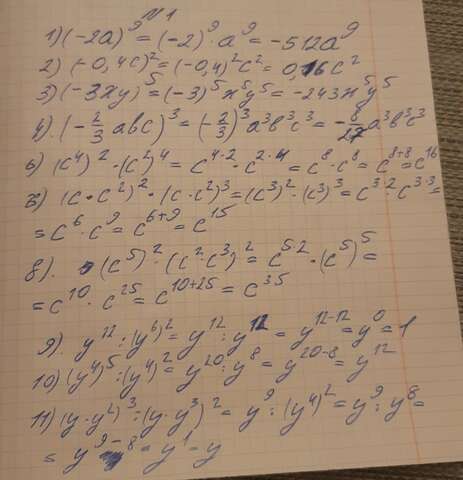 №1
1) (-2a)⁹ = (-2)⁹ · a⁹ = -512a⁹
2) (-0,4c)² = (-0,4)²c² = 0,16c²
3) (-3xy)⁵ = (-3)⁵x⁵y⁵ = -243x⁵y⁵
4). (-2/3 abc)³ = (-2/3)³a³b³c³ = -8/27 a³b³c³
6) (c⁴)² · (c²)⁴ = c⁴·² · c²·⁴ = c⁸ · c⁸ = c⁸⁺⁸ = c¹⁶
7) (c · c²)² · (c · c²)³ = (c³)² · (c³)³ = c³·² · c³·³ =
= c⁶ · c⁹ = c⁶⁺⁹ = c¹⁵
8). (c⁵)² · (c² · c³)² = c⁵·² · (c⁵)⁵ =
= c¹⁰ · c²⁵ = c¹⁰⁺²⁵ = c³⁵
9). y¹² : (y⁶)² = y¹² : y¹² = y¹²⁻¹² = y⁰ = 1
10) (y⁴)⁵ : (y⁴)² = y²⁰ : y⁸ = y²⁰⁻⁸ = y¹²
11) (y · y²)³ : (y · y³)² = y⁹ : (y⁴)² = y⁹ : y⁸ =
= y⁹⁻⁸ = y¹ = y